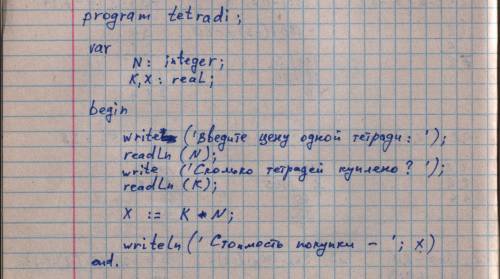 program tetradi;
var
N: integer;
K,X: real;
begin
write ('Введите цену одной тетради: ');
readln (N);
write ('Сколько тетрадей куплено? ');
readln (K);
X := K * N;
writeln (' Стоимость покупки – '; X)
end.